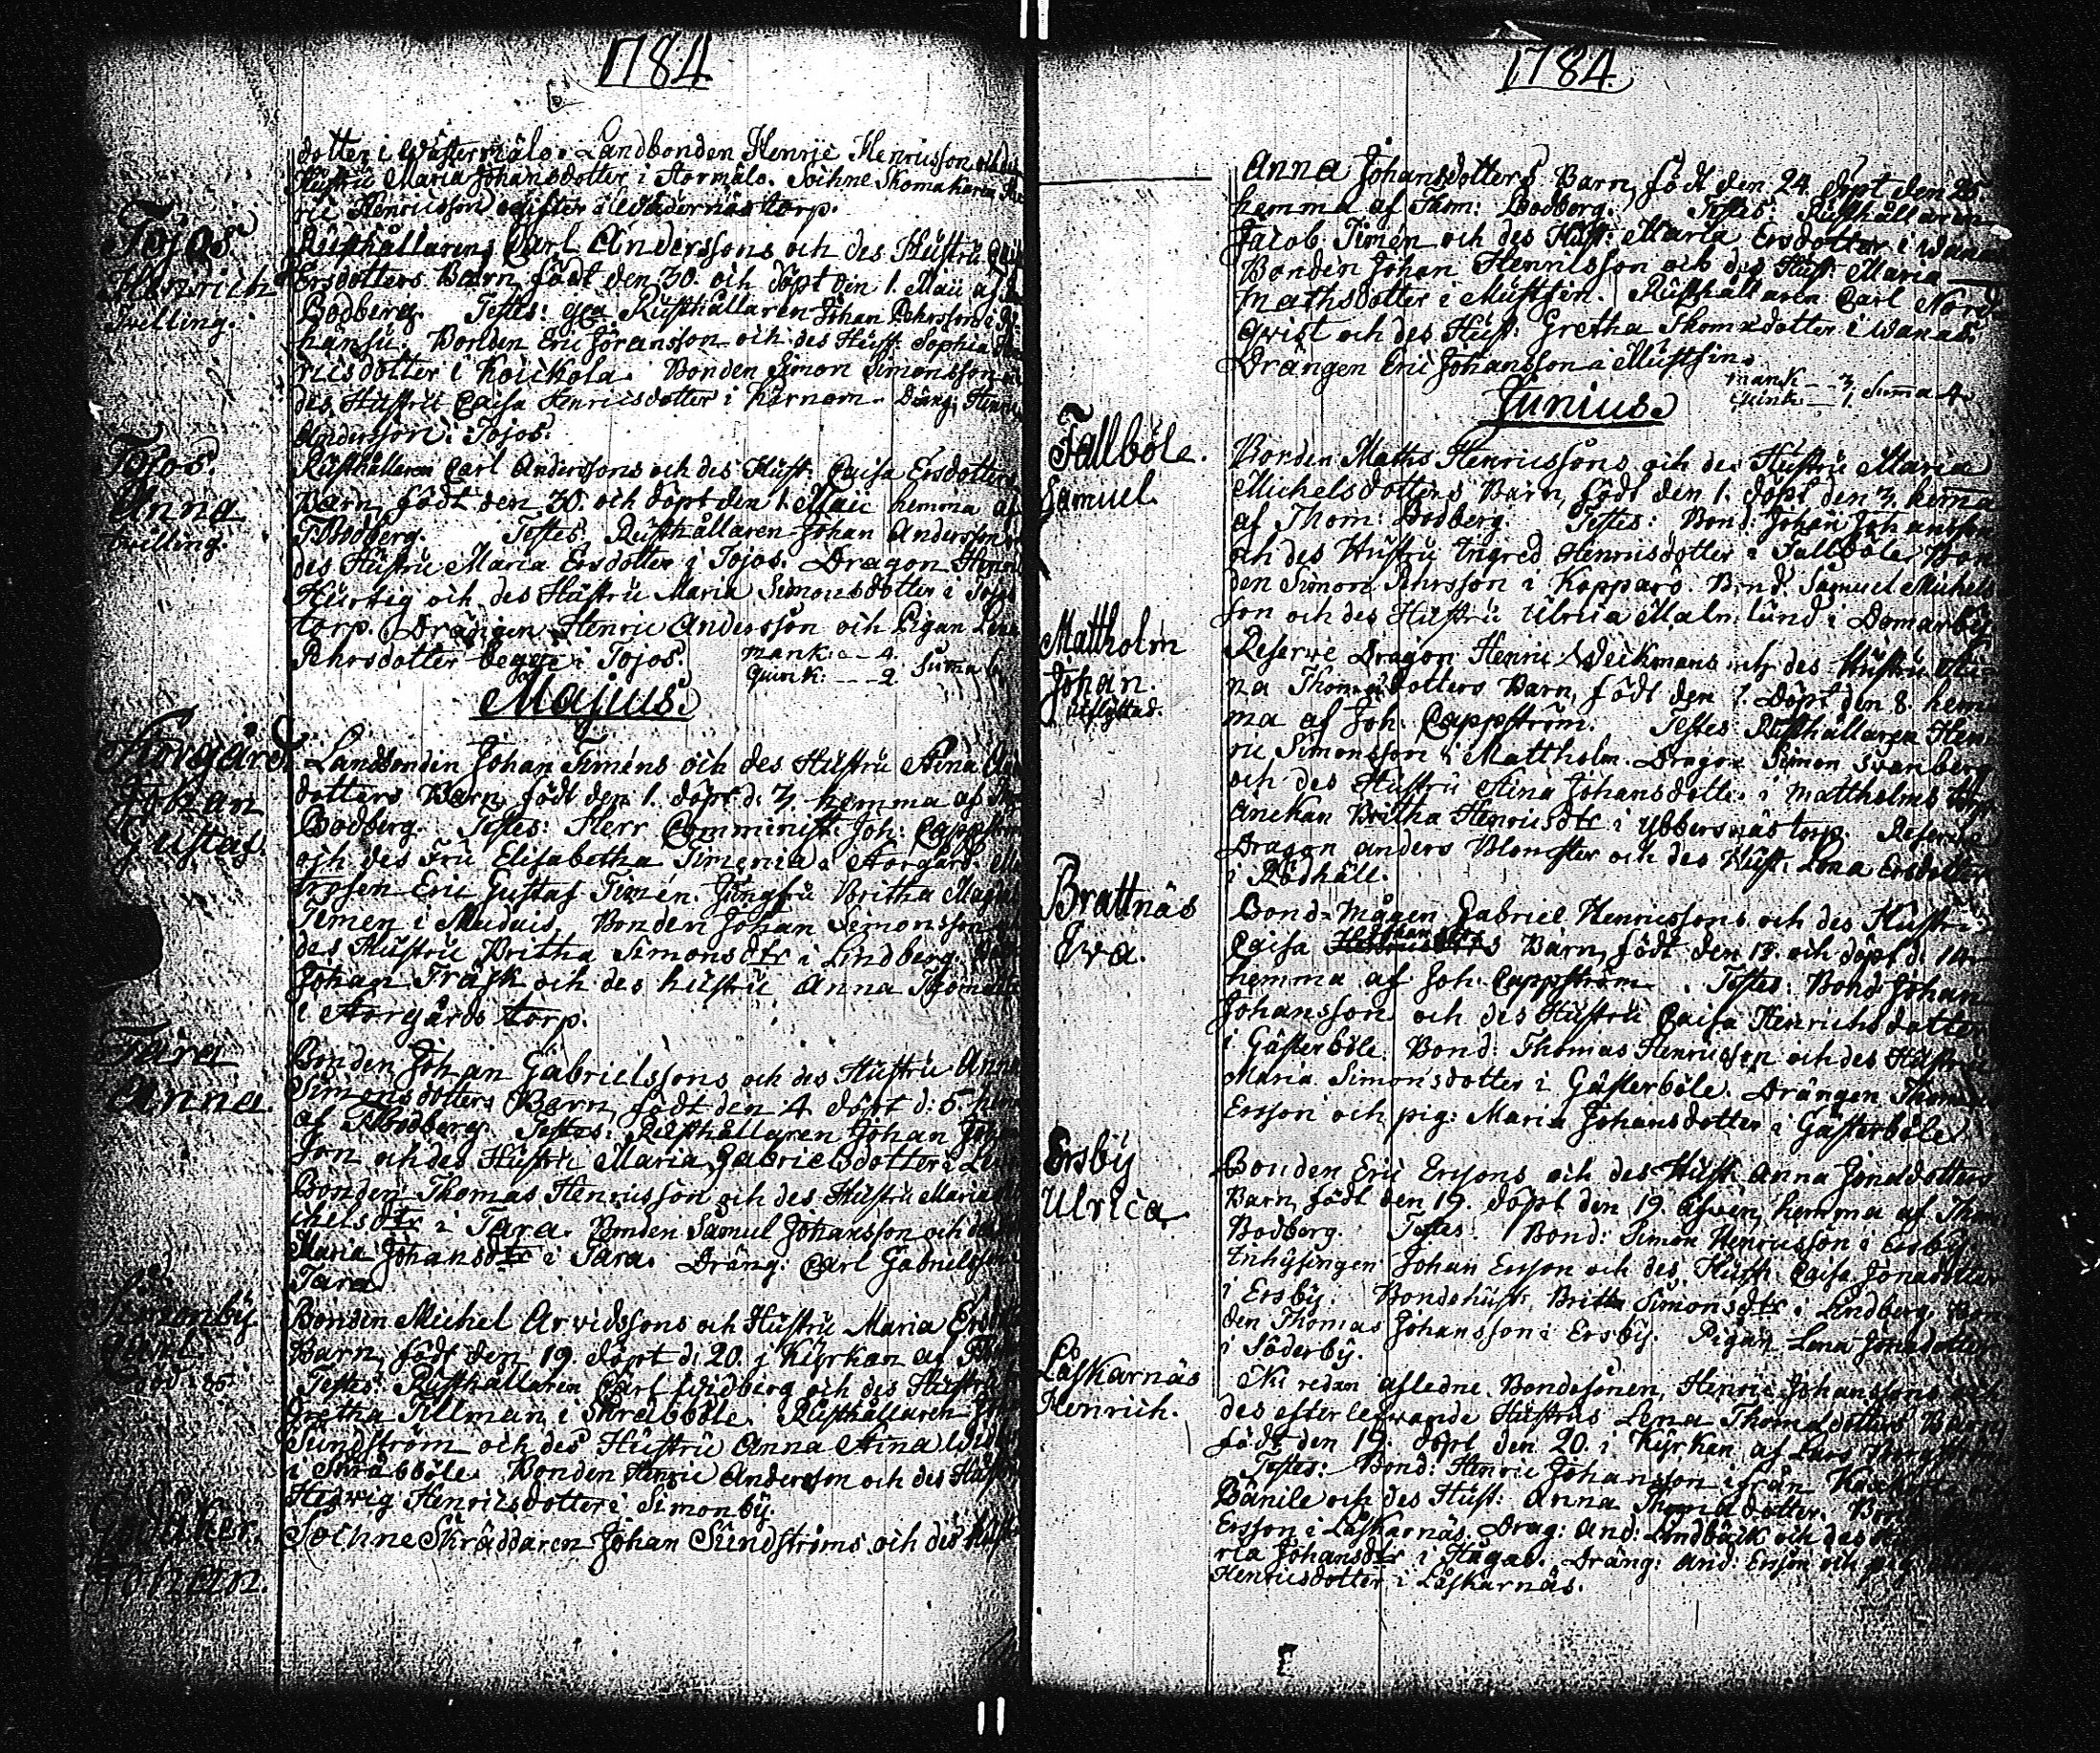 1784.
dotter i Wästermålo. Landbonden Henric Henricsson och des
Hustru Maria Johansdotter i Stormålo. Sochne Skomakaren
ric Henricsson ogifter i torp.
Tojos.
Henrich
Tvelling.
Rusthållaren Carl Anderssons och des Hustru Caisa
Ersdotters Barn, födt den 30. och döpt den 1. Maii af
Bodberg. Testes: Rusthållaren Johan Pehrsson i
Bonden Eric Göransson och des Hust. Sophia
ricsdotter i Koickola. Bonden Simon Simonsson
des Hustru Caisa Henricsdotter i Kärnom. Dräng: Henric
Andersson i Tojos.
Tojos.
Anna
tvelling.
Rusthållaren Carl Anderssons och des Hust. Caisa Ersdotters
Barn, födt den 30. och döpt den 1. Maii hemma af
T. Bodberg. Testes. Rusthållaren Johan Andersson
des Hustru Maria Ersdotter i Tojos. Dragon Henric
Hurtig och des Hustru Maria Simonsdotter i Tojos
torp. Drängen Henric Andersson och Pigan Lena
Pehrsdotter begge i Tojos. mank: -- 4.
quink: -- 2. Suma 6.
Majus.
Storgård.
Johan
Gustaf.
Landbonden Johan Timéns och des Hustru Stina
dotters Barn, födt den 1. döpt d. 3. hemma af
Bodberg. Testes: Herr Comminist. Joh: Cappström
och des Fru Elisabetha Timenia i Storgård.
trosen Eric Gustaf Timén. Jungfru Britha
Timen i Bonden Johan Simonsson
des Hustru Britha Simonsdtr i Lindberg.
Johan Träsk och des hustru Anna
i Storgårds torp.
Tara
Anna.
Bonden Johan Gabrielssons och des Hustru Anna
Simonsdotters Barn, födt den 4. döpt d: 5.
af T. Bodberg. Testes: Rusthållaren Johan
son och des Hustru Maria Gabrielsdotter i
Bonden Thomas Henricsson och des Hustru Maria
chelsdtr i Tara. Bonden Samuel Johansson och des
Maria Johansdtr i Tara. Dräng: Carl Gabrielsson
Tara.
Simonby
Bonden Michel Arvidssons och Hustru Maria
Barn, födt den 19. döpt d: 20. i Kyrkan af
Testes: Rusthållaren Carl Widberg och des Hustru
Gretha Tillman i Skräbböle. Rusthållaren
Sundström och des Hustru Anna Stina
i Skräbböle. Bonden Henric Andersson och des Hustru
Hedwig Henricsdotter i Simonby.
Johan.
Sochne Skräddaren Johan Sundströms och des
1784.
Anna Johansdotters Barn, födt den 24. döpt den 25.
hemma af Thom: Bodberg. Testes: Rusthållaren
Jacob Timén och des Hust: Maria Ersdotter i
Bonden Johan Henricsson och des Hust: Maria
Mathsdotter i Mustfin. Rusthållaren Carl Nord-
qvist och des Hust: Gretha Thomædotter i
Drängen Eric Johansson i Mustfin.
mank -- 3.
quink -- 1. Summa 4.
Junius.
Fallböle.
Samuel.
Bonden Maths Henricssons och des Hustru Maria
Michelsdotters Barn, födt den 1. döpt den 3. hemma
af Thom: Bodberg. Testes: Bond: Johan Johansson
och des Hustru Ingred Henricsdotter i Fallböle Bon-
den Simon Pehrsson i Kopparö. Bond. Samuel Michels
son och des Hustru Ulrica Malmlund i Domarby
Mattholm
Johan.
utflyttad.
Reserve Dragon Henric Weikmans och des Hustru
na Thomædotters Barn, födt den 7. Döpt den 8. hem-
ma af Joh: Cappström. Testes Rusthållaren Hen-
ric Simonsson i Mattholm. Dragon Simon Svanberg
och des Hustru Stina Johansdotter i Mattholms torp
Änckan Britha Henricsdtr i Ybbersnäs torp. Reserve
Dragon Anders Blomster och des Hust. Lena Ersdotter
i Rödhäll.
Brattnäs
Eva.
Bond-Mågen Gabriel Henricssons och des Hustru
Caisa Johansdtrs Barn, födt den 13. och döpt d: 14.
hemma af Joh: Cappström. Testes: Bond: Johan
Johansson och des Hustru Caisa Henrichsdotter
i Gästerböle. Bond: Thomas Henricsson och des Hustru
Maria Simonsdotter i Gästerböle. Drängen Thomas
Ersson och pig: Maria Johansdotter i Gästerböle.
Ersby
Ulrica.
Bonden Eric Erssons och des Hust. Anna Jonædotters
Barn, födt den 19. döpt den 19. hemma af Thom
Bodberg. Testes: Bond: Simon Henricsson i Ersby
Inhysingen Johan Ersson och des Hust. Caisa Jonædotter
i Ersby. Bondehust. Britha Simonsdtr i Lindberg. Bon-
den Thomas Johansson i Ersby. Pigan Lena Jonædotter
i Söderby.
Låskarnäs
Henrich.
redan afledne Bondesonen, Henric Johanssons och
des efterlefwande Hustrus Lena Thomædotters Barn
födt den 19. döpt den 20. i Kyrkan af Lars
Testes: Bond: Henric Johansson ifrån
och des Hust: Anna Thomædotter.
Ersson i Låskarnäs. Drag: And: Lindbäck och des
ria Johansdtr i Hågas. Dräng: And: Ersson och pig
Henricsdotter i Låskarnäs.